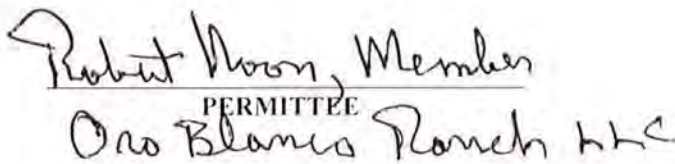 Robert Noon, Member
PERMITTEE
Oro Blanco Ranch LLC